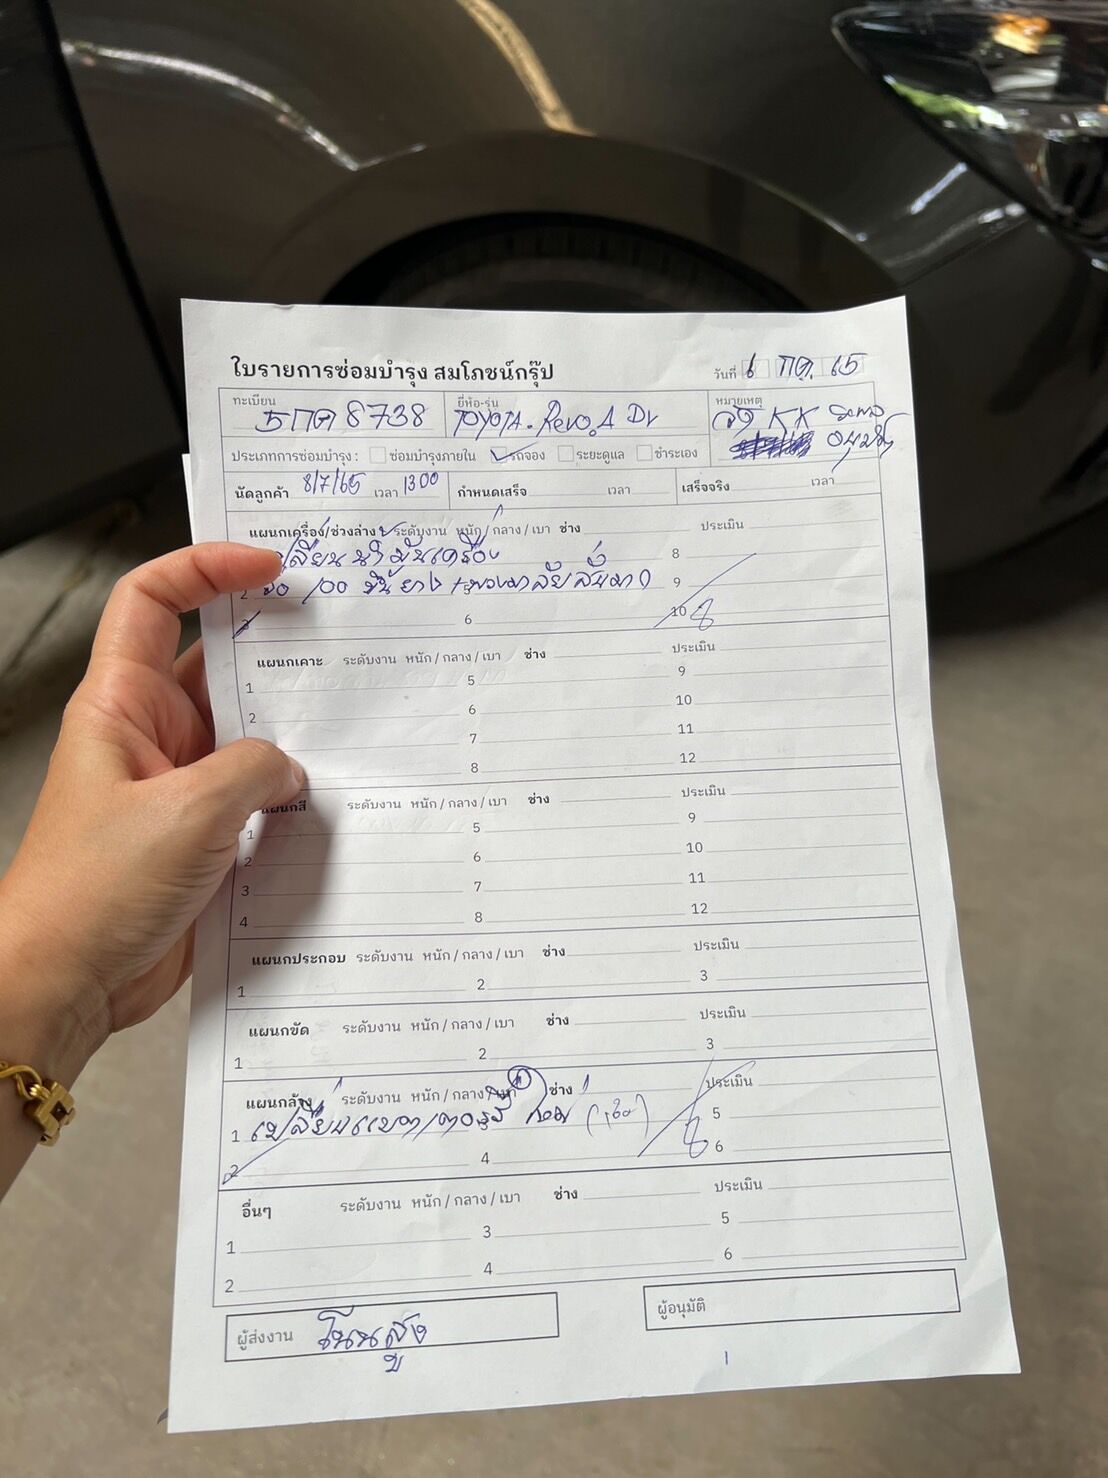 ใบรายการซ่อมบำรุง สมโภชน์กรุ๊ป
วันที่ 6 กค. 65
ทะเบียน 5กด 8738 ยี่ห้อ-รุ่น TOYOTA. Revo. 4 Dr หมายเหตุ จัด KK รอผล อนุมัติ
ประเภทการซ่อมบำรุง : ซ่อมบำรุงภายใน รถจอง ระยะดูแล ชำระเอง
นัดลูกค้า 8/7/65 เวลา 13:00 กำหนดเสร็จ เวลา เสร็จจริง เวลา
แผนกเครื่อง/ช่วงล่าง ระดับงาน หนัก / กลาง / เบา ช่าง ประเมิน
เปลี่ยนน้ำมันเครื่อง 8
2 100 พวงมาลัยสั่นมาก 9
3 6 10 8
แผนกเคาะ ระดับงาน หนัก / กลาง / เบา ช่าง ประเมิน
1 5 9
2 6 10
7 11
8 12
แผนกสี ระดับงาน หนัก / กลาง / เบา ช่าง ประเมิน
1 5 9
2 6 10
3 7 11
4 8 12
แผนกประกอบ ระดับงาน หนัก / กลาง / เบา ช่าง ประเมิน
1 2 3
แผนกขัด ระดับงาน หนัก / กลาง / เบา ช่าง ประเมิน
1 2 3
แผนกล้าง ระดับงาน หนัก / กลาง / เบา ช่าง ประเมิน
1 เปลี่ยนแบตเตอรี่ 5
2 4 8 6
อื่นๆ ระดับงาน หนัก / กลาง / เบา ช่าง ประเมิน
1 3 5
2 4 6
ผู้ส่งงาน โนนสูง ผู้อนุมัติ
1